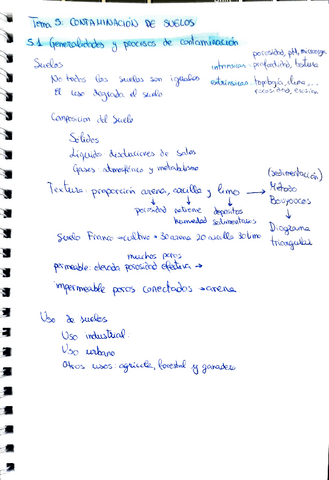 Tema 5: CONTAMINACIÓN DE SUELOS
5.1 Generalidades y procesos de contaminación
Suelos
porosidad, pH, microorg
intrínsecas: profundidad, textura
No todos los suelos son iguales
extrínsecas: topografía, clima,...
El uso degrada el suelo
rocosidad, erosión
Composición del Suelo
Sólidos
Líquido disoluciones de sales
Gases atmosférico y metabolismo
(sedimentación)
Textura: proporción arena, arcilla y limo → Método
Bouyoucos
porosidad retiene depósitos
humedad sedimentarios
Diagrama
triangular
Suelo Franco → cultivo • 30 arena 20 arcilla 30 limo
muchos poros
permeable: elevada porosidad efectiva →
impermeable poros conectados → arena
Uso de suelos
Uso industrial
Uso urbano
Otros usos: agrícola, forestal y ganadero